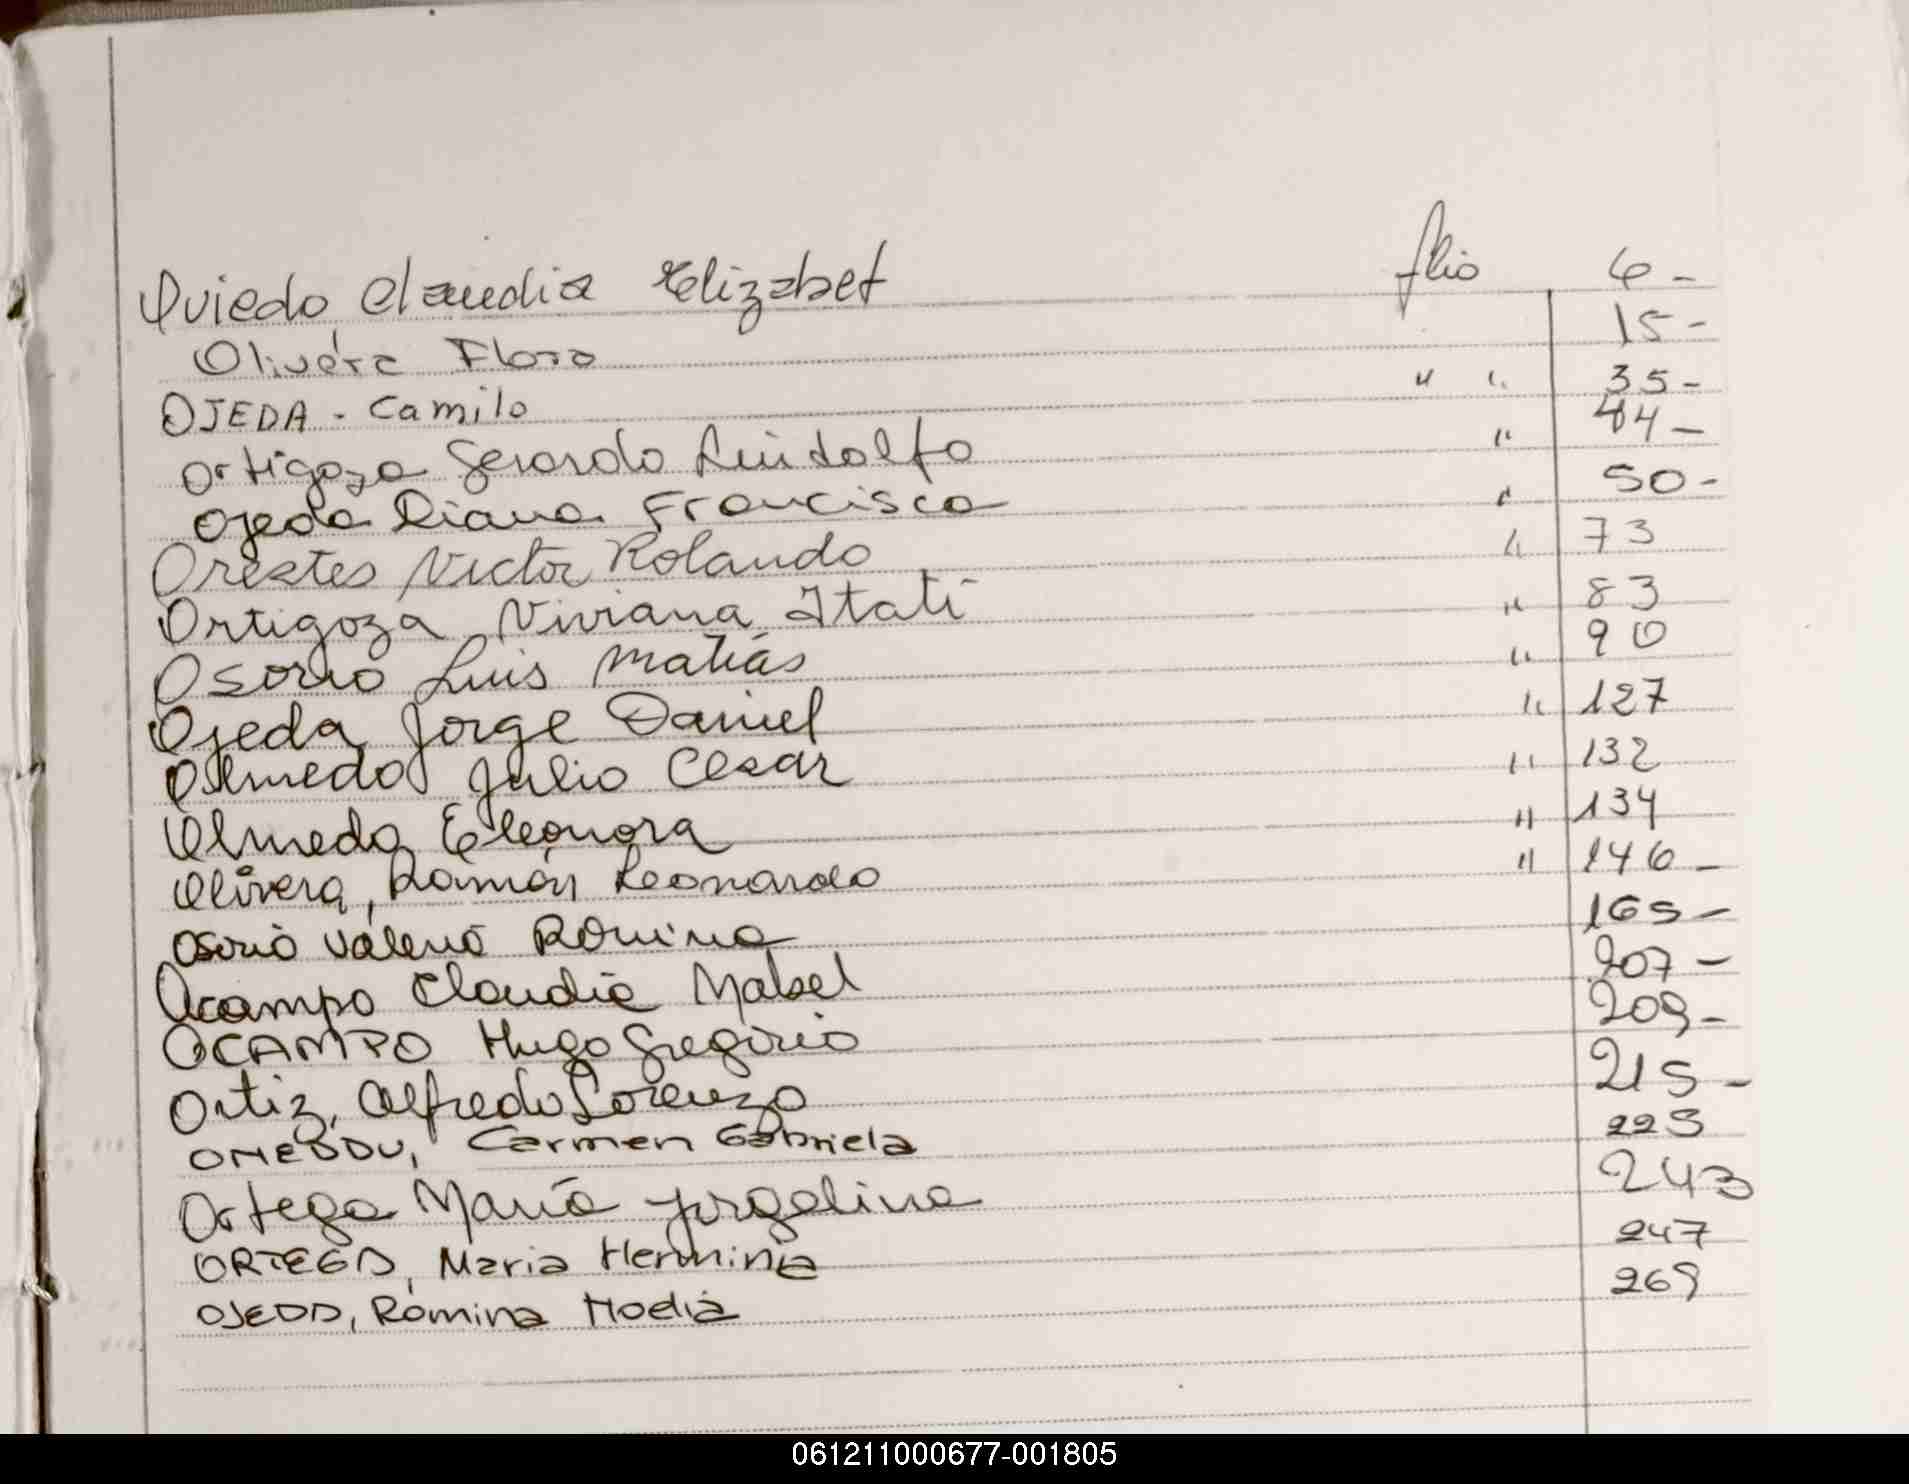 Oviedo Claudia Elizabet flio 6 -
Olivera Flora 15 -
OJEDA - Camilo " " 35 -
Ortigoza Gerardo Luidolfo " 44 -
Ojeda Diana Francisca " 50 -
Orestes Victor Rolando " 73
Ortigoza Viviana Itatí " 83
Osorio Luis Matías " 90
Ojeda Jorge Daniel " 127
Olmedo Julio Cesar " 132
Olmedo Eleonora " 134
Olivera, Ramón Leonardo " 146 -
Osorio Valeria Romina 165 -
Ocampo Claudia Mabel 207 -
OCAMPO Hugo Gregorio 209 -
Ortiz, Alfredo Lorenzo 215 -
OMEDDU, Carmen Gabriela 223
Ortega María Jorgelina 243
ORTEGA, Maria Herminia 247
OJEDA, Romina Noelia 269
061211000677-001805